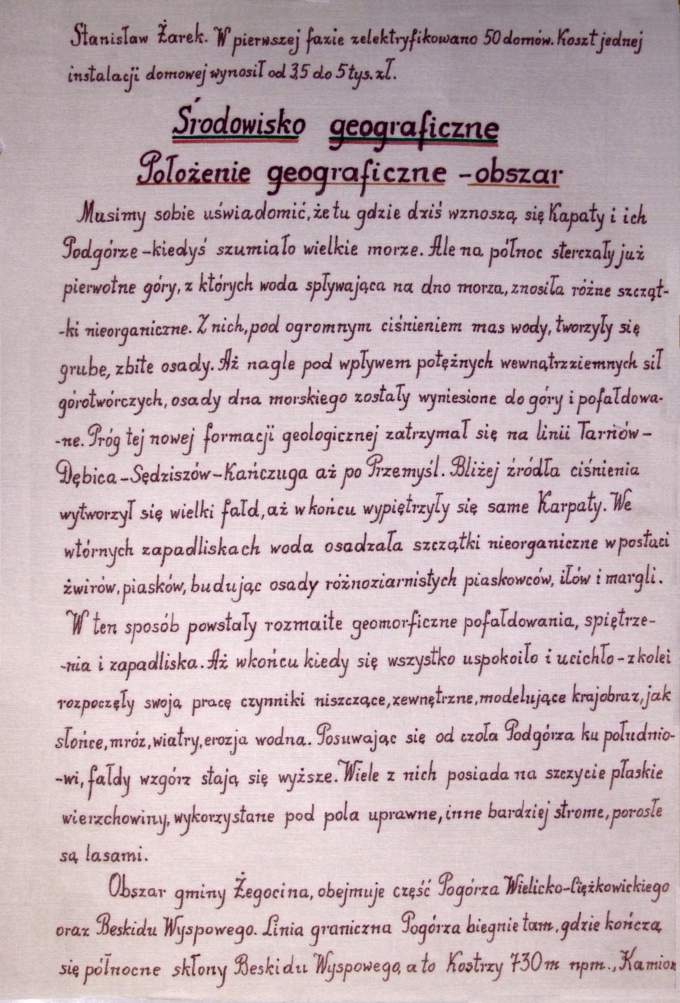 Stanisław Żarek. W pierwszej fazie zelektryfikowano 50 domów. Koszt jednej
instalacji domowej wynosił od 3,5 do 5 tys. zł.
Środowisko geograficzne
Położenie geograficzne - obszar
Musimy sobie uświadomić, że tu gdzie dziś wznoszą się Kapaty i ich
Podgórze - kiedyś szumiało wielkie morze. Ale na północ sterczały już
pierwotne góry, z których woda spływająca na dno morza, znosiła różne szcząt-
-ki nieorganiczne. Z nich, pod ogromnym ciśnieniem mas wody, tworzyły się
grube, zbite osady. Aż nagle pod wpływem potężnych wewnątrzziemnych sił
górotwórczych, osady dna morskiego zostały wyniesione do góry i pofałdowa-
-ne. Próg tej nowej formacji geologicznej zatrzymał się na linii Tarnów -
Dębica - Sędziszów - Kańczuga aż po Przemyśl. Bliżej źródła ciśnienia
wytworzył się wielki fałd, aż w końcu wypiętrzyły się same Karpaty. We
wtórnych zapadliskach woda osadzała szczątki nieorganiczne w postaci
żwirów, piasków, budując osady różnoziarnistych piaskowców, iłów i margli.
W ten sposób powstały rozmaite geomorficzne pofałdowania, spiętrze-
-nia i zapadliska. Aż wkońcu kiedy się wszystko uspokoiło i ucichło - z kolei
rozpoczęły swoją pracę czynniki niszczące, zewnętrzne, modelujące krajobraz, jak
słońce, mróz, wiatry, erozja wodna. Posuwając się od czoła Podgórza ku południo-
-wi, fałdy wzgórz stają się wyższe. Wiele z nich posiada na szczycie płaskie
wierzchowiny, wykorzystane pod pola uprawne, inne bardziej strome, porosłe
są lasami.
Obszar gminy Żegocina, obejmuje część Pogórza Wielicko-Ciężkowickiego
oraz Beskidu Wyspowego. Linia graniczna Pogórza biegnie tam, gdzie kończą
się północne skłony Beskidu Wyspowego, a to Kostrzy 730 m npm., Kamion